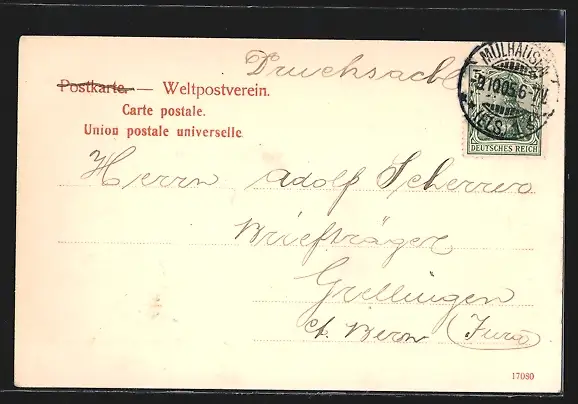 Drucksache
Postkarte. — Weltpostverein.
Carte postale.
Union postale universelle
MÜLHAUSEN
-9.10.05.6-7N.
(ELS.)
DEUTSCHES REICH
Herrn Adolf Scherrer
Briefträger
Grellingen
Ct. Bern (Jura)
17080